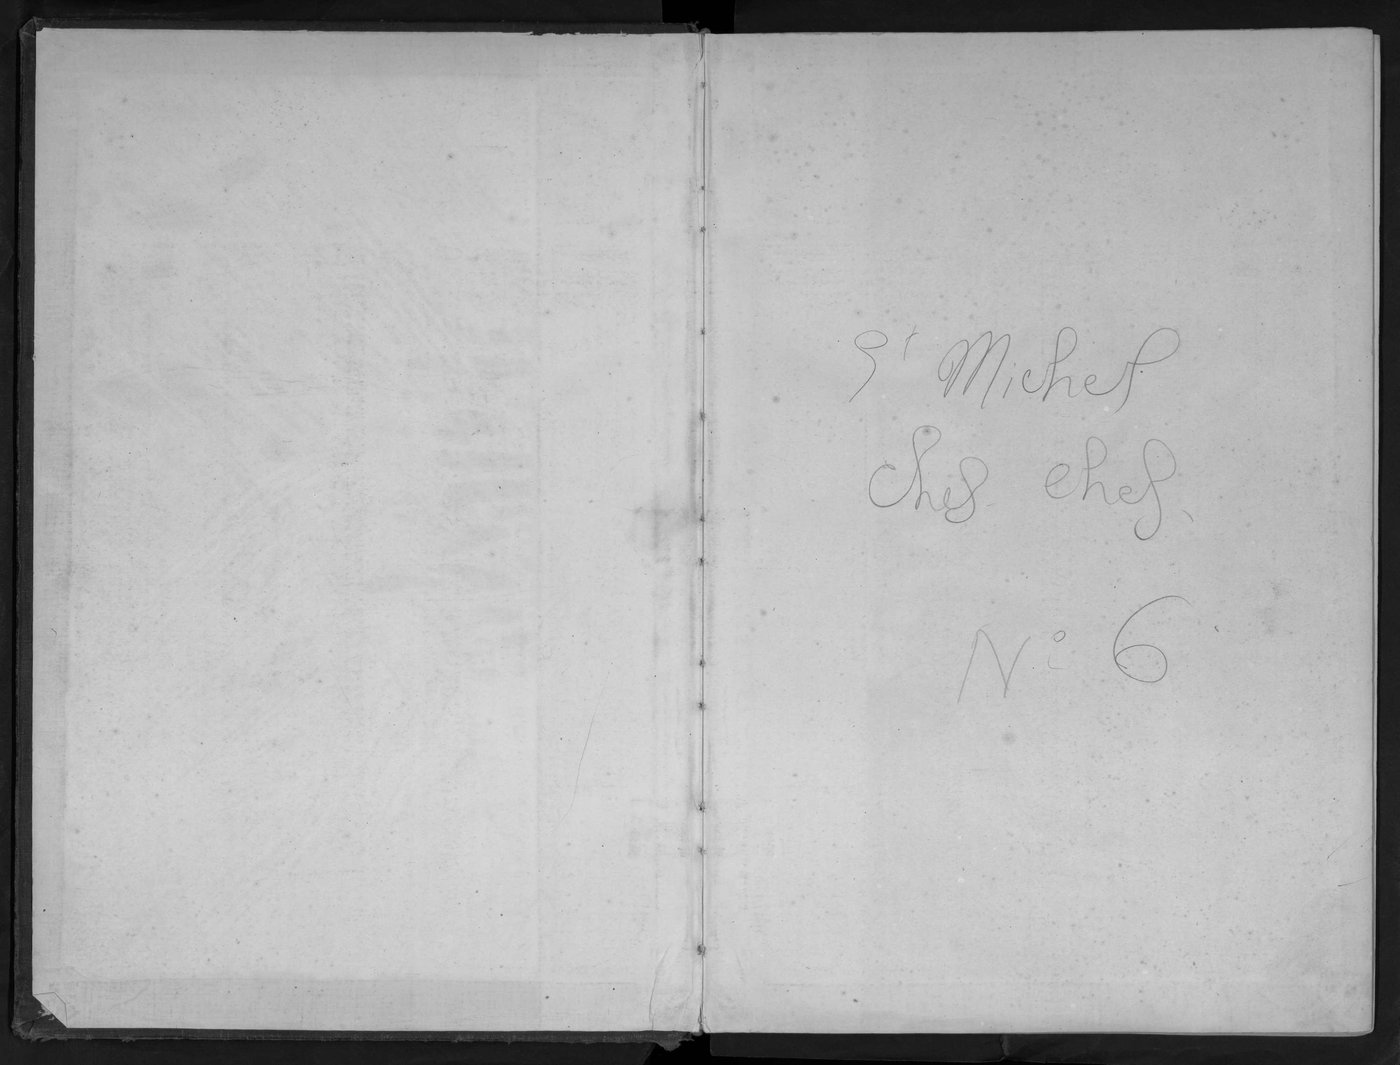 St Michel
chef chef.
No 6